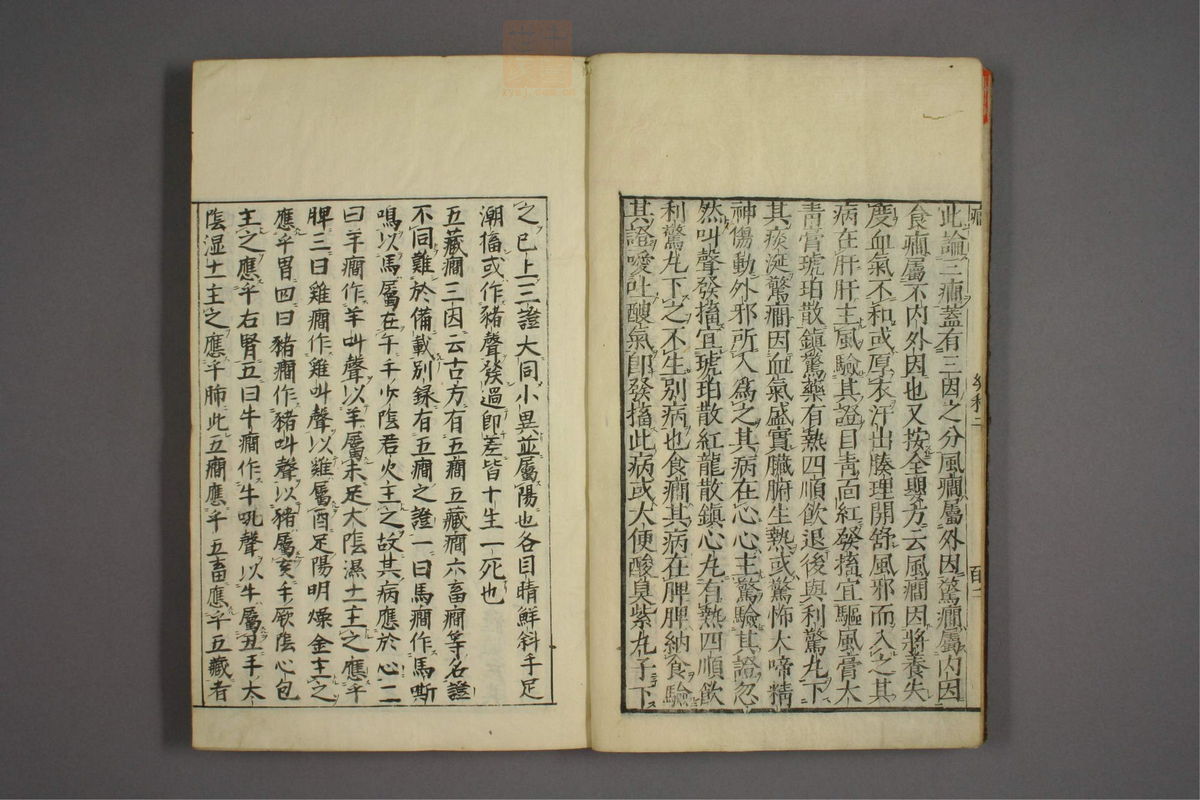 此論三癇蓋有三因之分風癇屬外因驚癇屬內因
食癇屬不內外因也又按全嬰方云風癇因將養失
度血氣不和或厚衣汗出腠理開舒風邪而入之其
病在肝肝主風驗其證目青面紅發搐宜驅風膏大
青膏琥珀散鎮驚藥有熱四順飲退後與利驚丸下
其痰涎驚癇因血氣盛實臟腑生熱或驚怖大啼精
神傷動外邪所入為之其病在心心主驚驗其證忽
然叫聲發搐宜琥珀散紅龍散鎮心丸有熱四順飲
利驚丸下之不生別病也食癇其病在脾脾納食驗
其證噯吐酸氣即發搐此病或大便酸臭紫丸子下
之已上三證大同小異並屬陽也各目睛鮮斜手足
潮搐或作豬聲發過即差皆十生一死也
五藏癇三因云古方有五癇五藏癇六畜癇等名證
不同難於備載別録有五癇之證一曰馬癇作馬嘶
鳴以馬屬在午手少陰君火主之故其病應於心二
曰羊癇作羊叫聲以羊屬未足太陰濕土主之應乎
脾三曰雞癇作雞叫聲以雞屬酉足陽明燥金主之
應乎胃四曰豬癇作豬叫聲以豬屬亥手厥陰心包
主之應乎右腎五曰牛癇作牛吼聲以牛屬丑手太
陰湿土主之應乎肺此五癇應乎五畜應乎五藏者